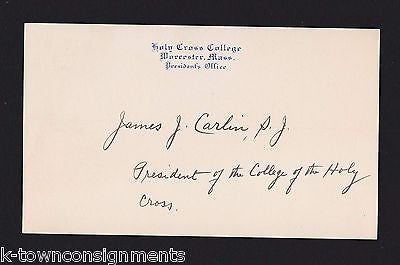 Holy Cross College
Worcester, Mass.
President's Office
James J. Carlin, S. J.
President of the College of the Holy
Cross.
k-townconsignments